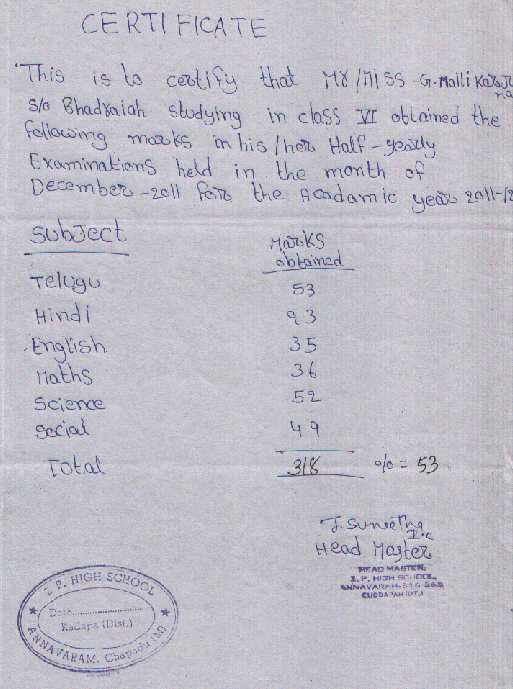 CERTIFICATE
This is to certify that Mr/Miss G. Mallikarju
na
S/o Bhadraiah studying in class VI obtained the
following marks in his/her Half-yearly
Examinations held in the month of
December-2011 for the Acadamic year 2011-12
Subject Marks
obtained
Telugu 53
Hindi 93
English 35
Maths 36
Science 52
Social 49
Total 318 % = 53
J. Suneetha
I.c
Head Master
HEAD MASTER,
Z. P. HIGH SCHOOL,
ANNAVARAM-516
CUDDAPAH (DT.)
Z. P. HIGH SCHOOL
Date
Kadapa (Dist.)
ANNAVARAM, Chapadu (M)